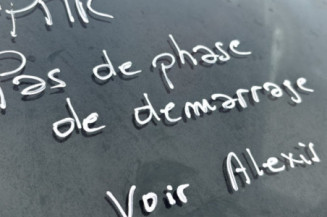 Pas de phase
de demarrage
Voir Alexis